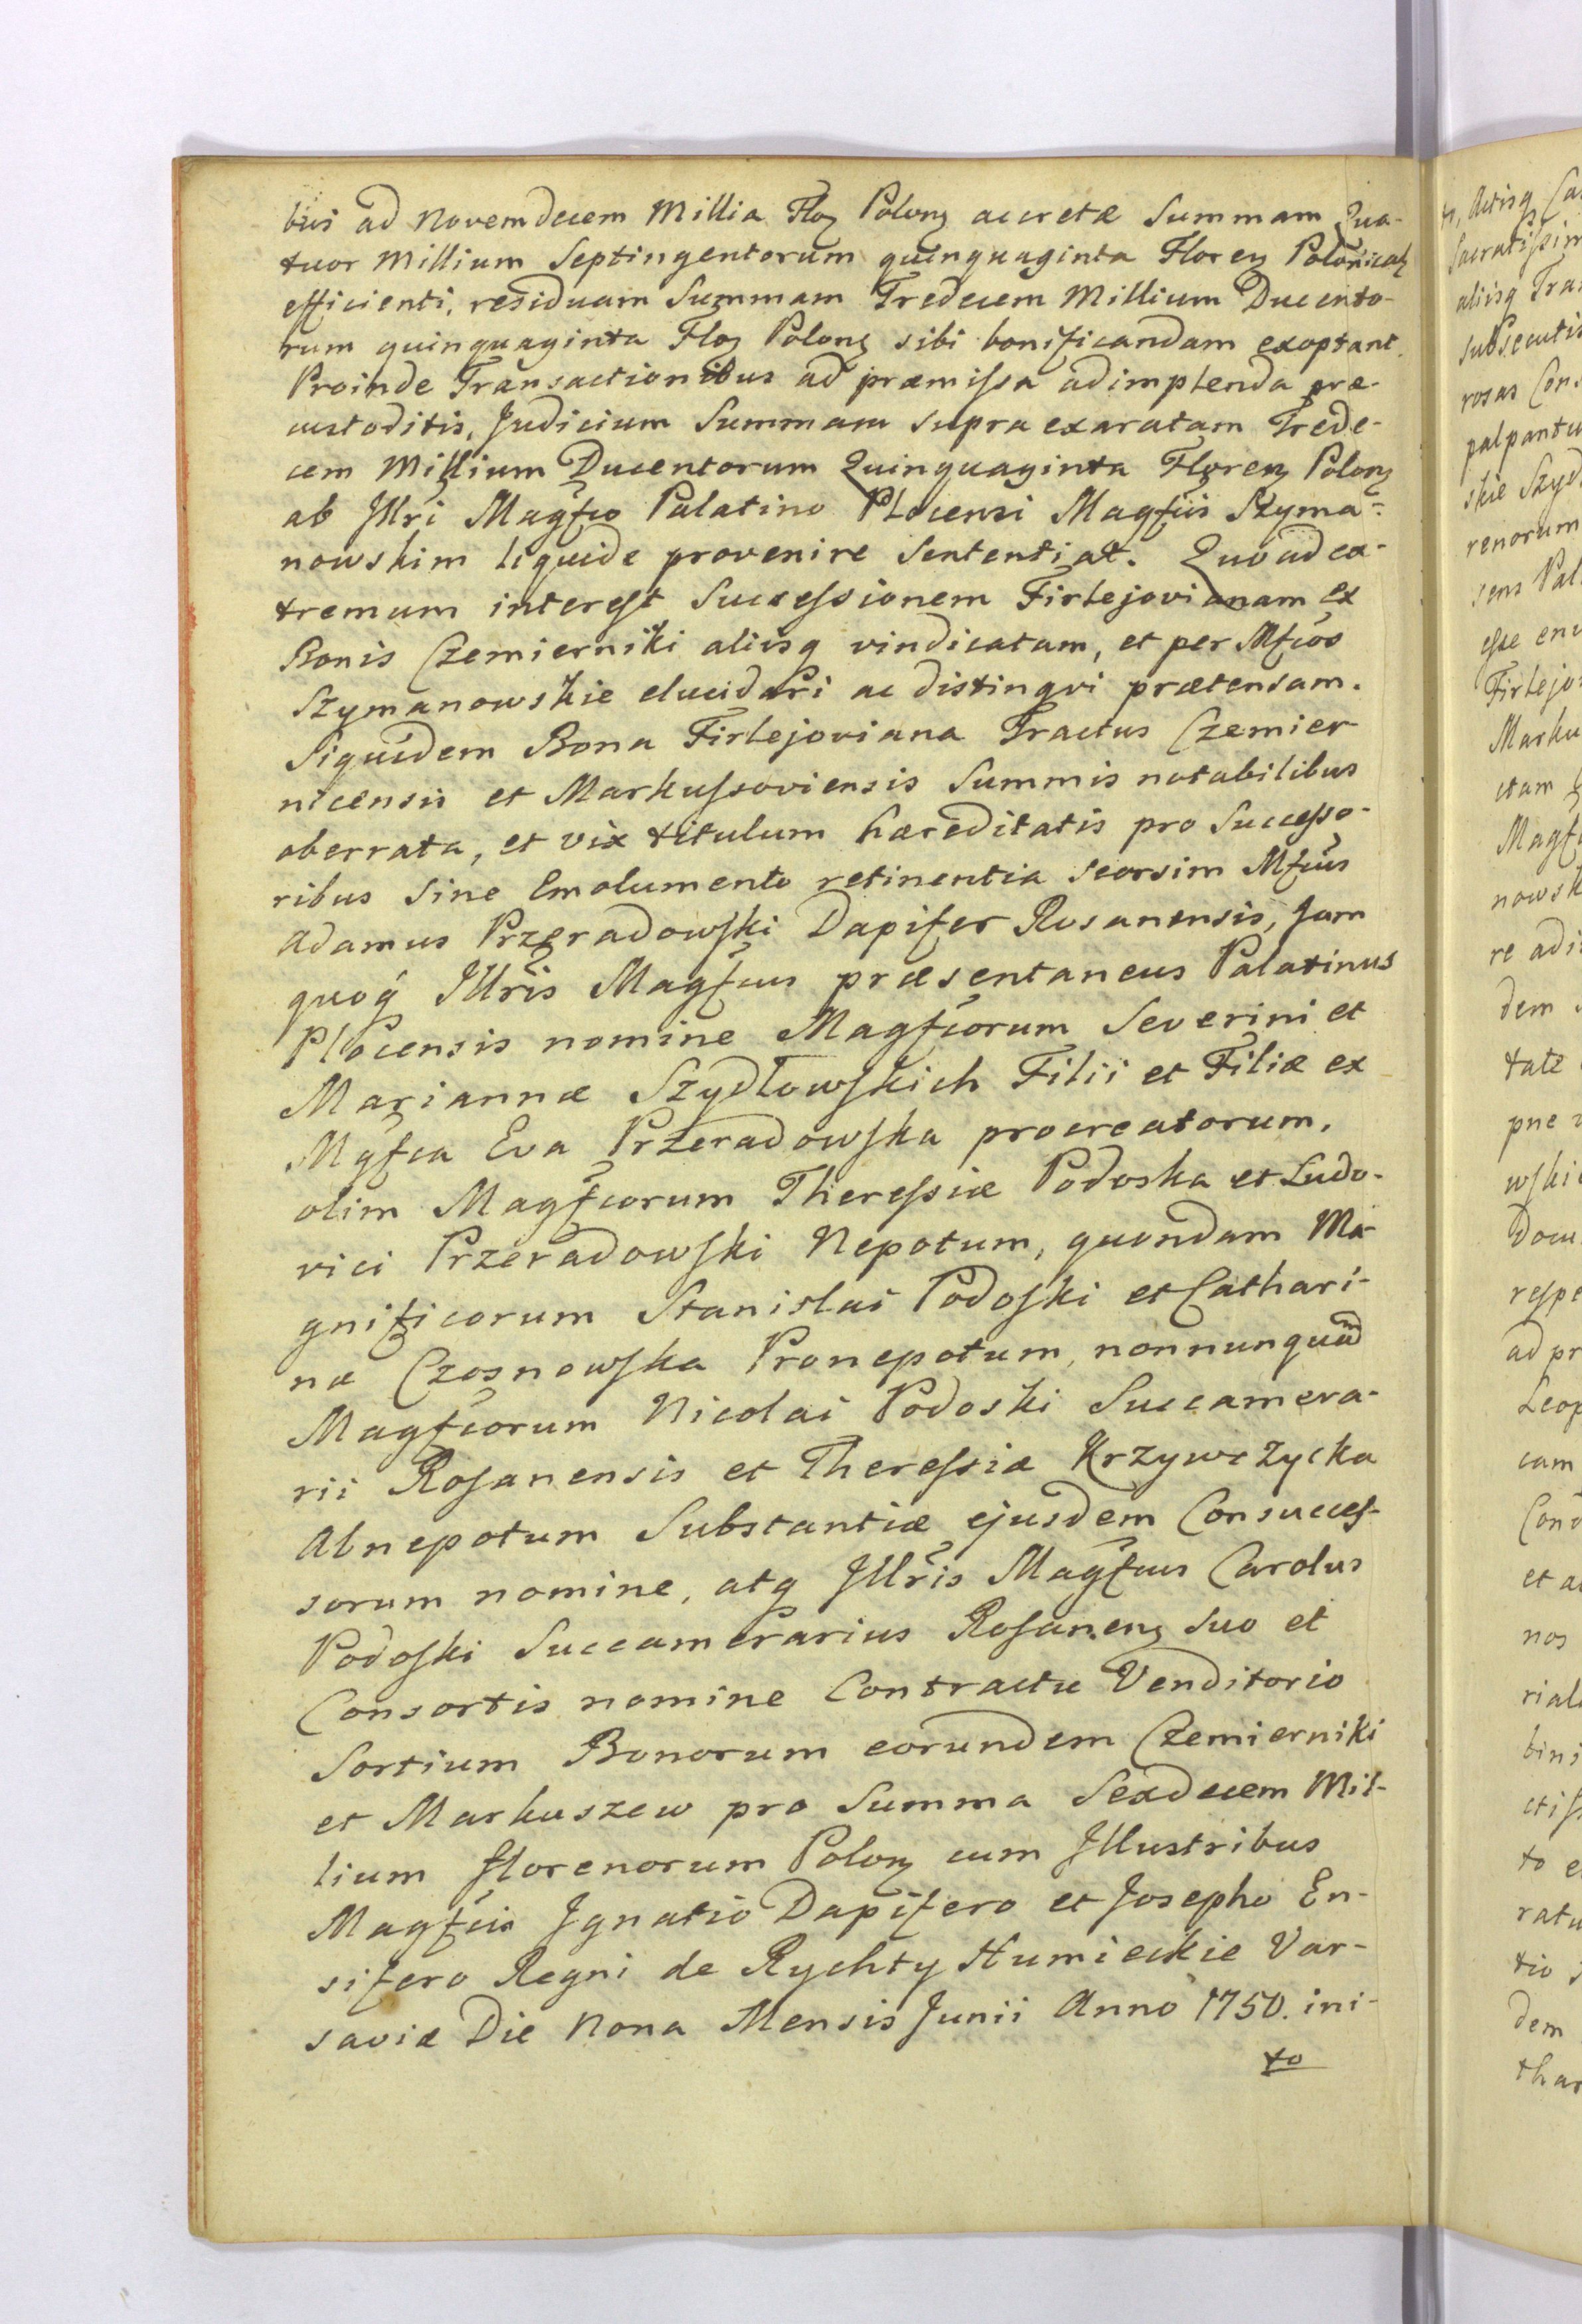 bus ad Novemdecem Millia Flor Polon accretæ Summam Qua-
tuor Millium Septingentorum quinquaginta Floren Polonical
efficienti, residuam Summam Tredecem Millium Ducento-
rum quinquaginta Flor Polon sibi bonificandam exoptant.
Proinde Transactionibus ad præmissa adimplenda præ-
custoditis, Judicium Summam supra exaratam Trede-
cem Millium Ducentorum Quinquaginta Floren Polon
ab Jllri Magfco Palatino Plocensi Magfcis Szyma-
nowskim liquide provenire Sententiat. Quo ad ex-
tremum interest Successionem Firlejovianam ex
Bonis Czemierniki aliisq vindicatam, et per Mfcos
Szymanowskie elucidari ac distingvi prætensam.
Siquidem Bona Firlejoviana Tractus Czemier
nicensis et Markussoviensis Summis notabilibus
oberrata, et vix titulum hæreditatis pro Successo-
ribus Sine Emolumento retinentia seorsim Mfcus
Adamus Przeradowski Dapifer Rosanensis, Jam
quoq Jllris Magfcus præsentaneus Palatinus
Plocensis nomine Magfcorum Severini et
Mariannæ Szydłowskich Filii et Filiæ ex
Mgfca Eva Przeradowska procreatorum,
olim Magfcorum Theressiæ Podoska et Ludo-
vici Przeradowski Nepotum, quondam Ma-
gnificorum Stanislai Podoski et Cathari-
næ Czosnowska Pronepotum, nonnunquam
Magfcorum Nicolai Podoski Succamera-
rii Rosanensis et Theressiæ Krzywczycka
Abnepotum Substantiæ ejusdem Consucces-
sorum nomine, atq Jllris Magfcus Carolus
Podoski Succamerarius Rosanen suo et
Consortis nomine Contractu Venditorio
Sortium Bonorum eorundem Czemierniki
et Markuszew pro Summa Sexdecem Mil-
lium florenorum Polon cum Jllustribus
Magfcis Jgnatio Dapifero et Josepho En-
sifero Regni de Rychty Humieckie Var-
saviæ Die Nona Mensis Junii Anno 1750. ini-
to